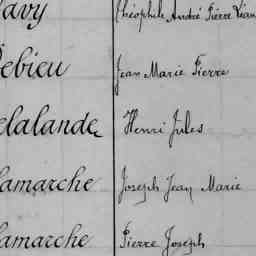 avy Théophile André Pierre Léon
Debieu Jean Marie Pierre
elalande Henri Jules
amarche Joseph Jean Marie
amarche Pierre Joseph